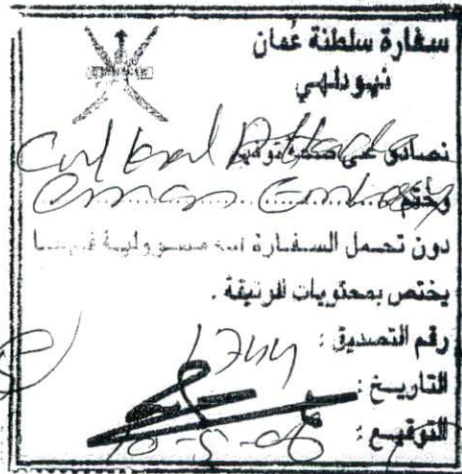 سفارة سلطنة عُمان
نيودلهي
نصادق على صحة توقيع
Cultural Attache
وختم
Oman Embassy
دون تحمل السفارة اية مسؤولية فيما
يختص بمحتويات الوثيقة .
رقم التصديق : 1744
التاريخ :
التوقيع :